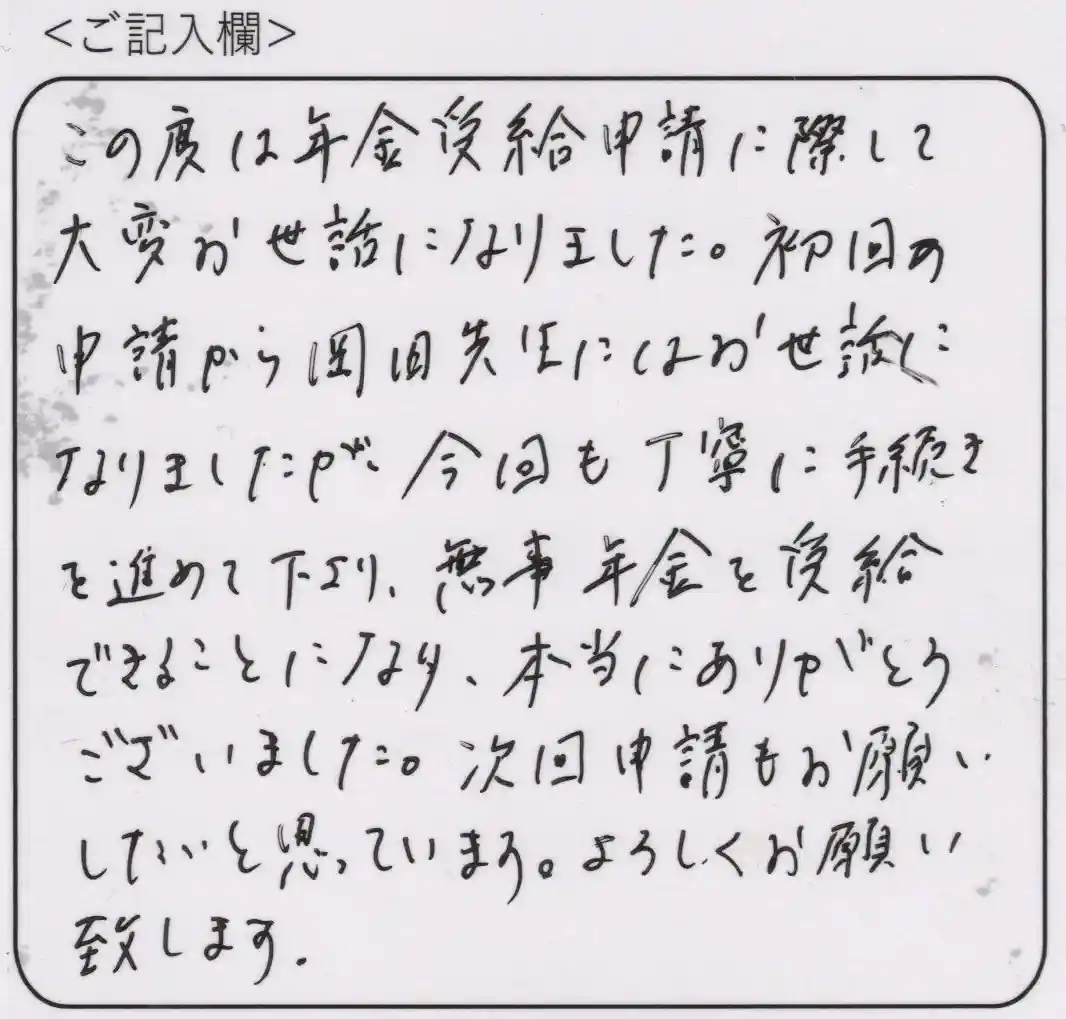 <ご記入欄>
この度は年金受給申請に際して
大変お世話になりました。初回の
申請から岡田先生にはお世話に
なりましたが、今回も丁寧に手続き
を進めて下さり、無事年金を受給
できることになり、本当にありがとう
ございました。次回申請もお願い
したいと思っています。よろしくお願い
致します.